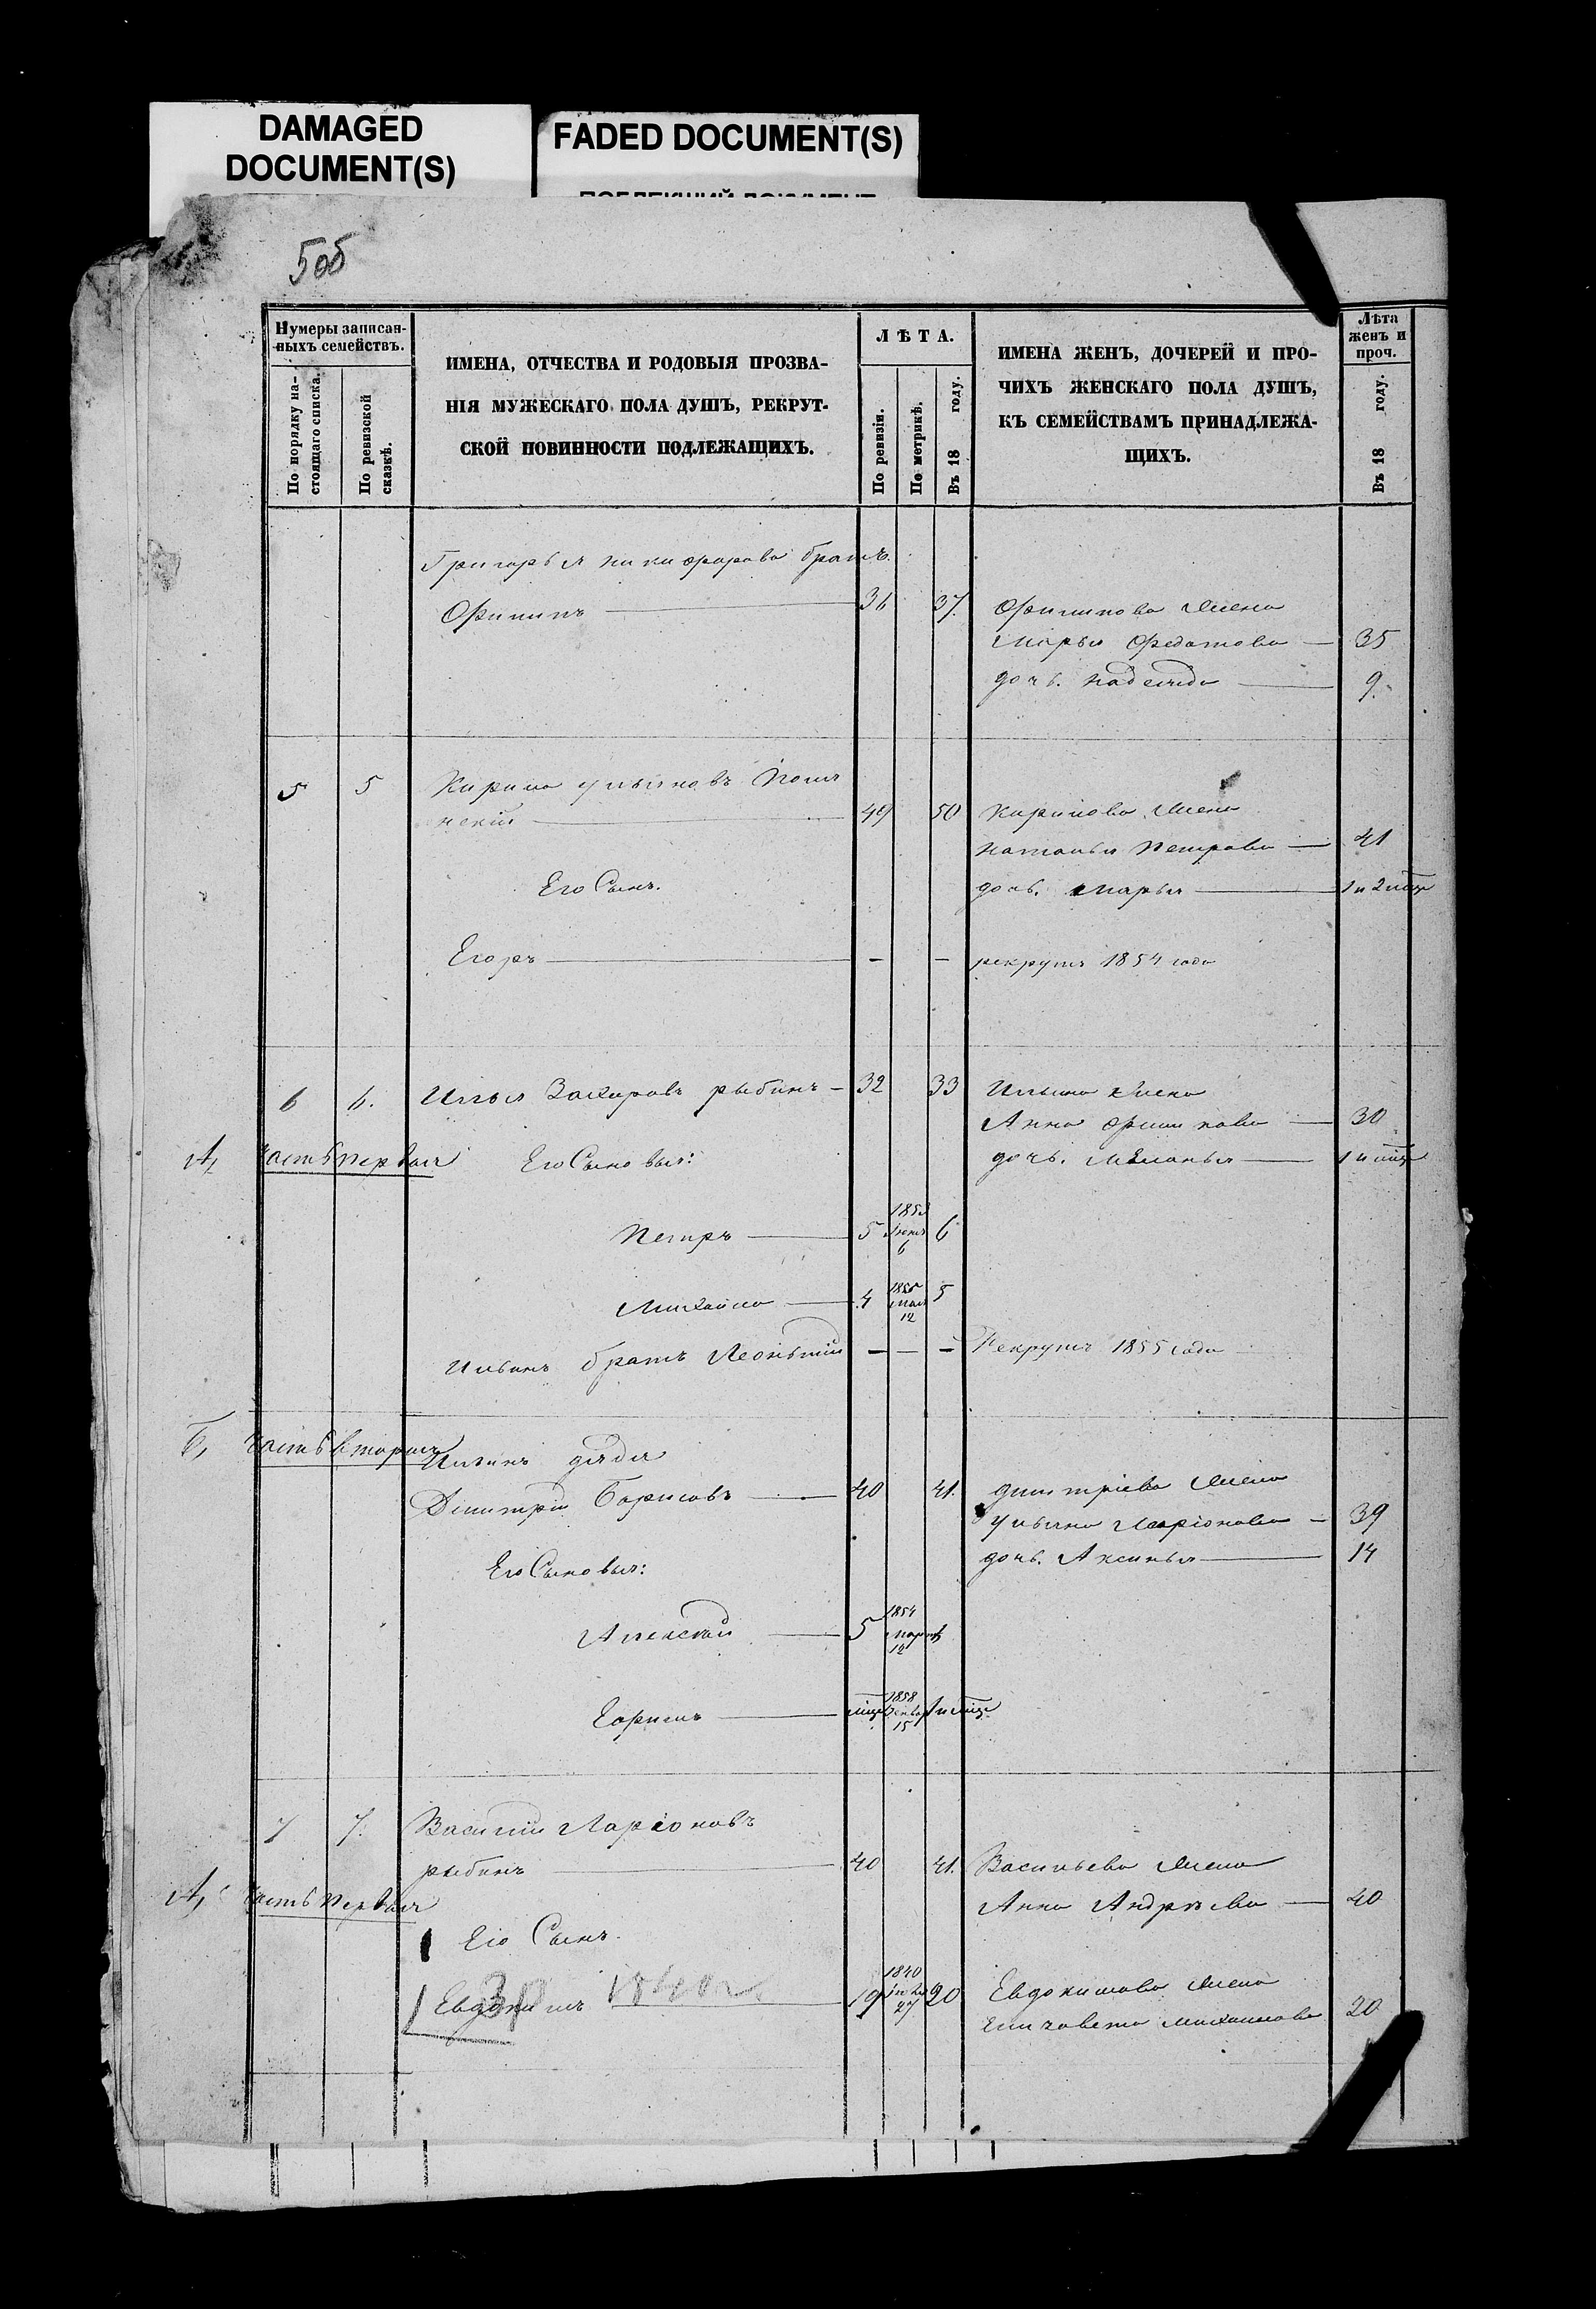 DAMAGED
DOCUMENT(S)
FADED DOCUMENT(S)
5об
Нумеры записан-
ныхъ семействъ.
По порядку на-
стоящаго списка.
По ревизской
сказкѣ.
ИМЕНА, ОТЧЕСТВА И РОДОВЫЯ ПРОЗВА-
НІЯ МУЖЕСКАГО ПОЛА ДУШЪ, РЕКРУТ-
СКОЙ ПОВИННОСТИ ПОДЛЕЖАЩИХЪ.
ЛѢТА.
По ревизіи.
По метрикѣ.
Въ 18 году.
ИМЕНА ЖЕНЪ, ДОЧЕРЕЙ И ПРО-
ЧИХЪ ЖЕНСКАГО ПОЛА ДУШЪ,
КЪ СЕМЕЙСТВАМЪ ПРИНАДЛЕЖА-
ЩИХЪ.
Лѣта
женъ и
проч.
Въ 18 году.
Григорья никифорова братъ.
Филипъ 36 37. Филипова жена
Марья Федотова 35
дочь. надежда 9.
5 5 Кирила ульяновъ
49 50 Кирилова жена
наталья Петрова 41
Его Сынъ. дочь. Марья 1 и 2 мѣц
Егоръ — — рекрутъ 1854 года
6 6. Илья Захаровъ рыбинъ 32 33 Ильина жена
Анна Филипова 30
А, часть первая Его Сыновья: дочь. Меланья 1 и мѣц
Петръ 5 1853 6 6
Михайла 4 1855 Мая 12 5
Ильинъ братъ Леонтій — — — Рекрутъ 1855 года
Б, часть вторая
Ильинъ дядя
Димитрій Борисовъ 40 41. димтріева жена
ульяна Ларіонова 39
Его Сыновья: дочь. Аксинья 14
Алексѣй 5 1854 Марта 12 6
мѣц 1858 Генвар 15 1 и мѣц
7 7. Василій Ларіоновъ
рыбинъ 40 41. Васильева жена
А, часть первая Анна Андрѣева 40
Его Сынъ.
Евдокимъ 1840 г. 19 1840 27 20 Евдокимова жена
Елизавета михайлова 20